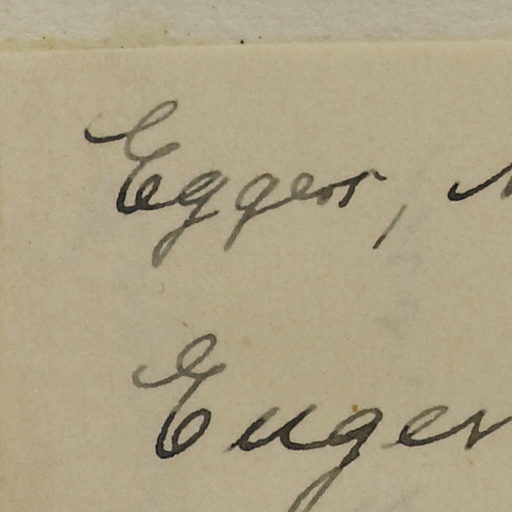 Eggers,
Euger